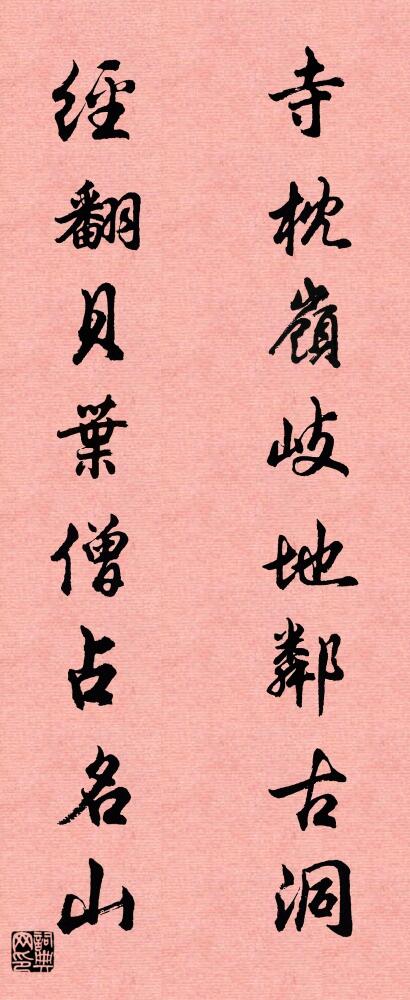 寺枕嶺岐地鄰古洞
經翻貝葉僧占名山
詞典网印